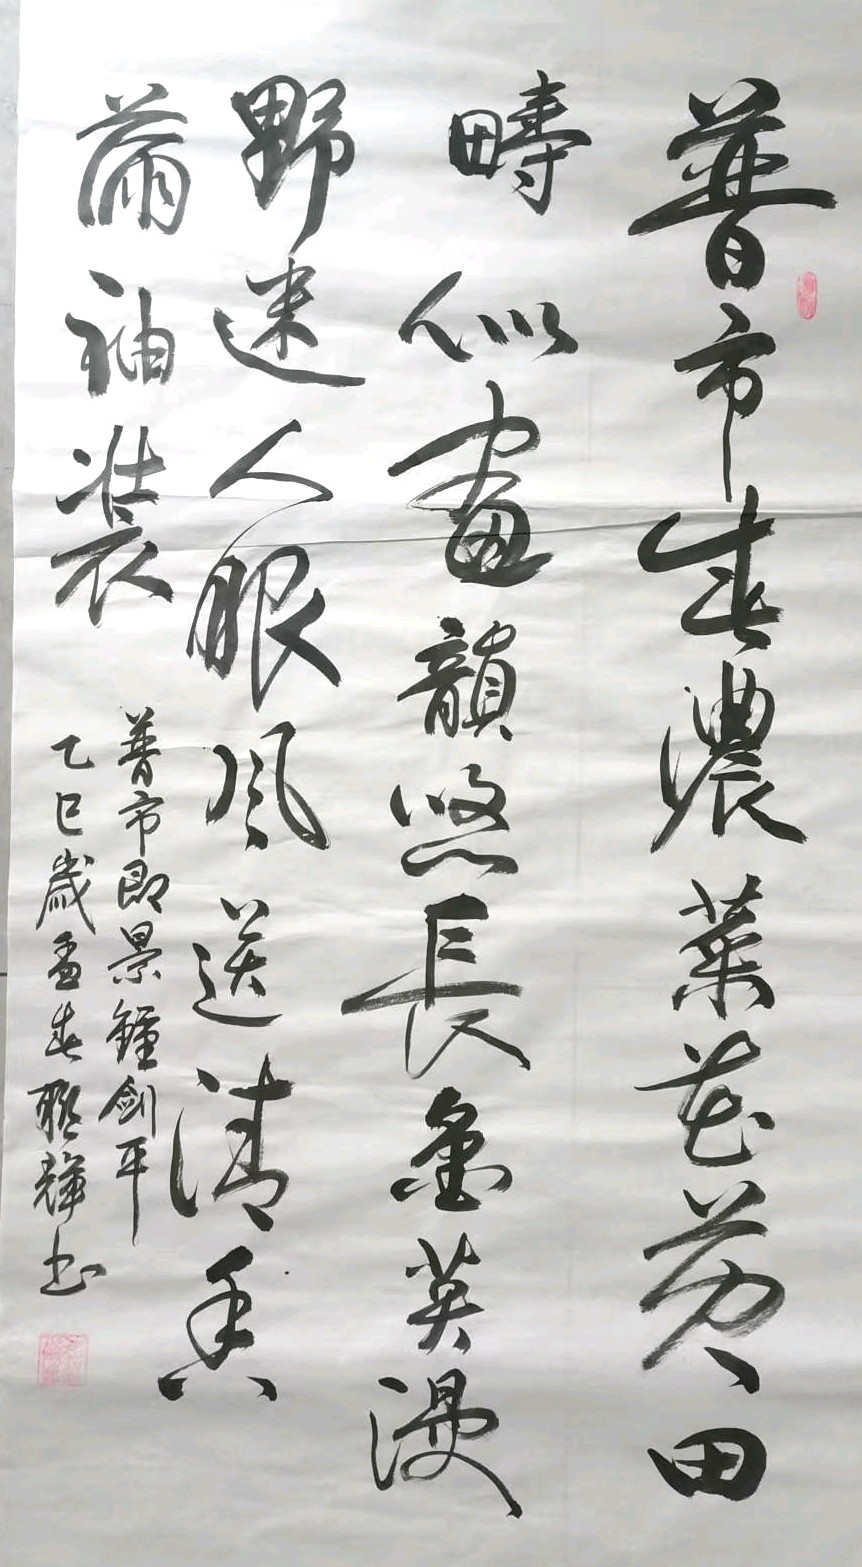 普市春濃菜花黄田
疇似畫韻悠長金英漫
野迷人眼風送清香
滿袖裝
普市即景鐘劍平
乙巳歲孟春聯輝书